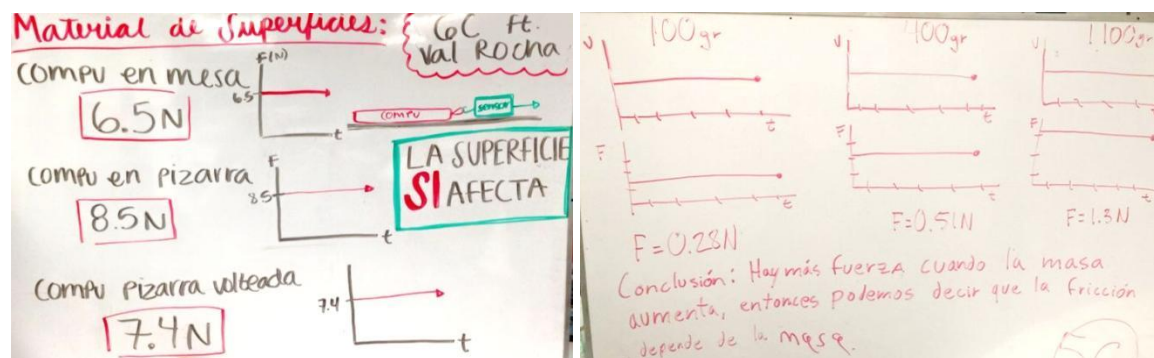 Material de Superficies:
GC ft.
Val Rocha
compu en mesa
6.5N
F(N)
6.5
t
compu
sensor
LA SUPERFICIE
SI AFECTA
compu en pizarra
8.5N
F
8.5
t
compu pizarra volteada
7.4N
7.4
t
100gr
V
t
F
t
F=0.28N
400gr
V
t
F
t
F=0.51N
1,100gr
V
t
F
t
F=1.3N
Conclusión: Hay más fuerza cuando la masa
aumenta, entonces podemos decir que la fricción
depende de la masa.